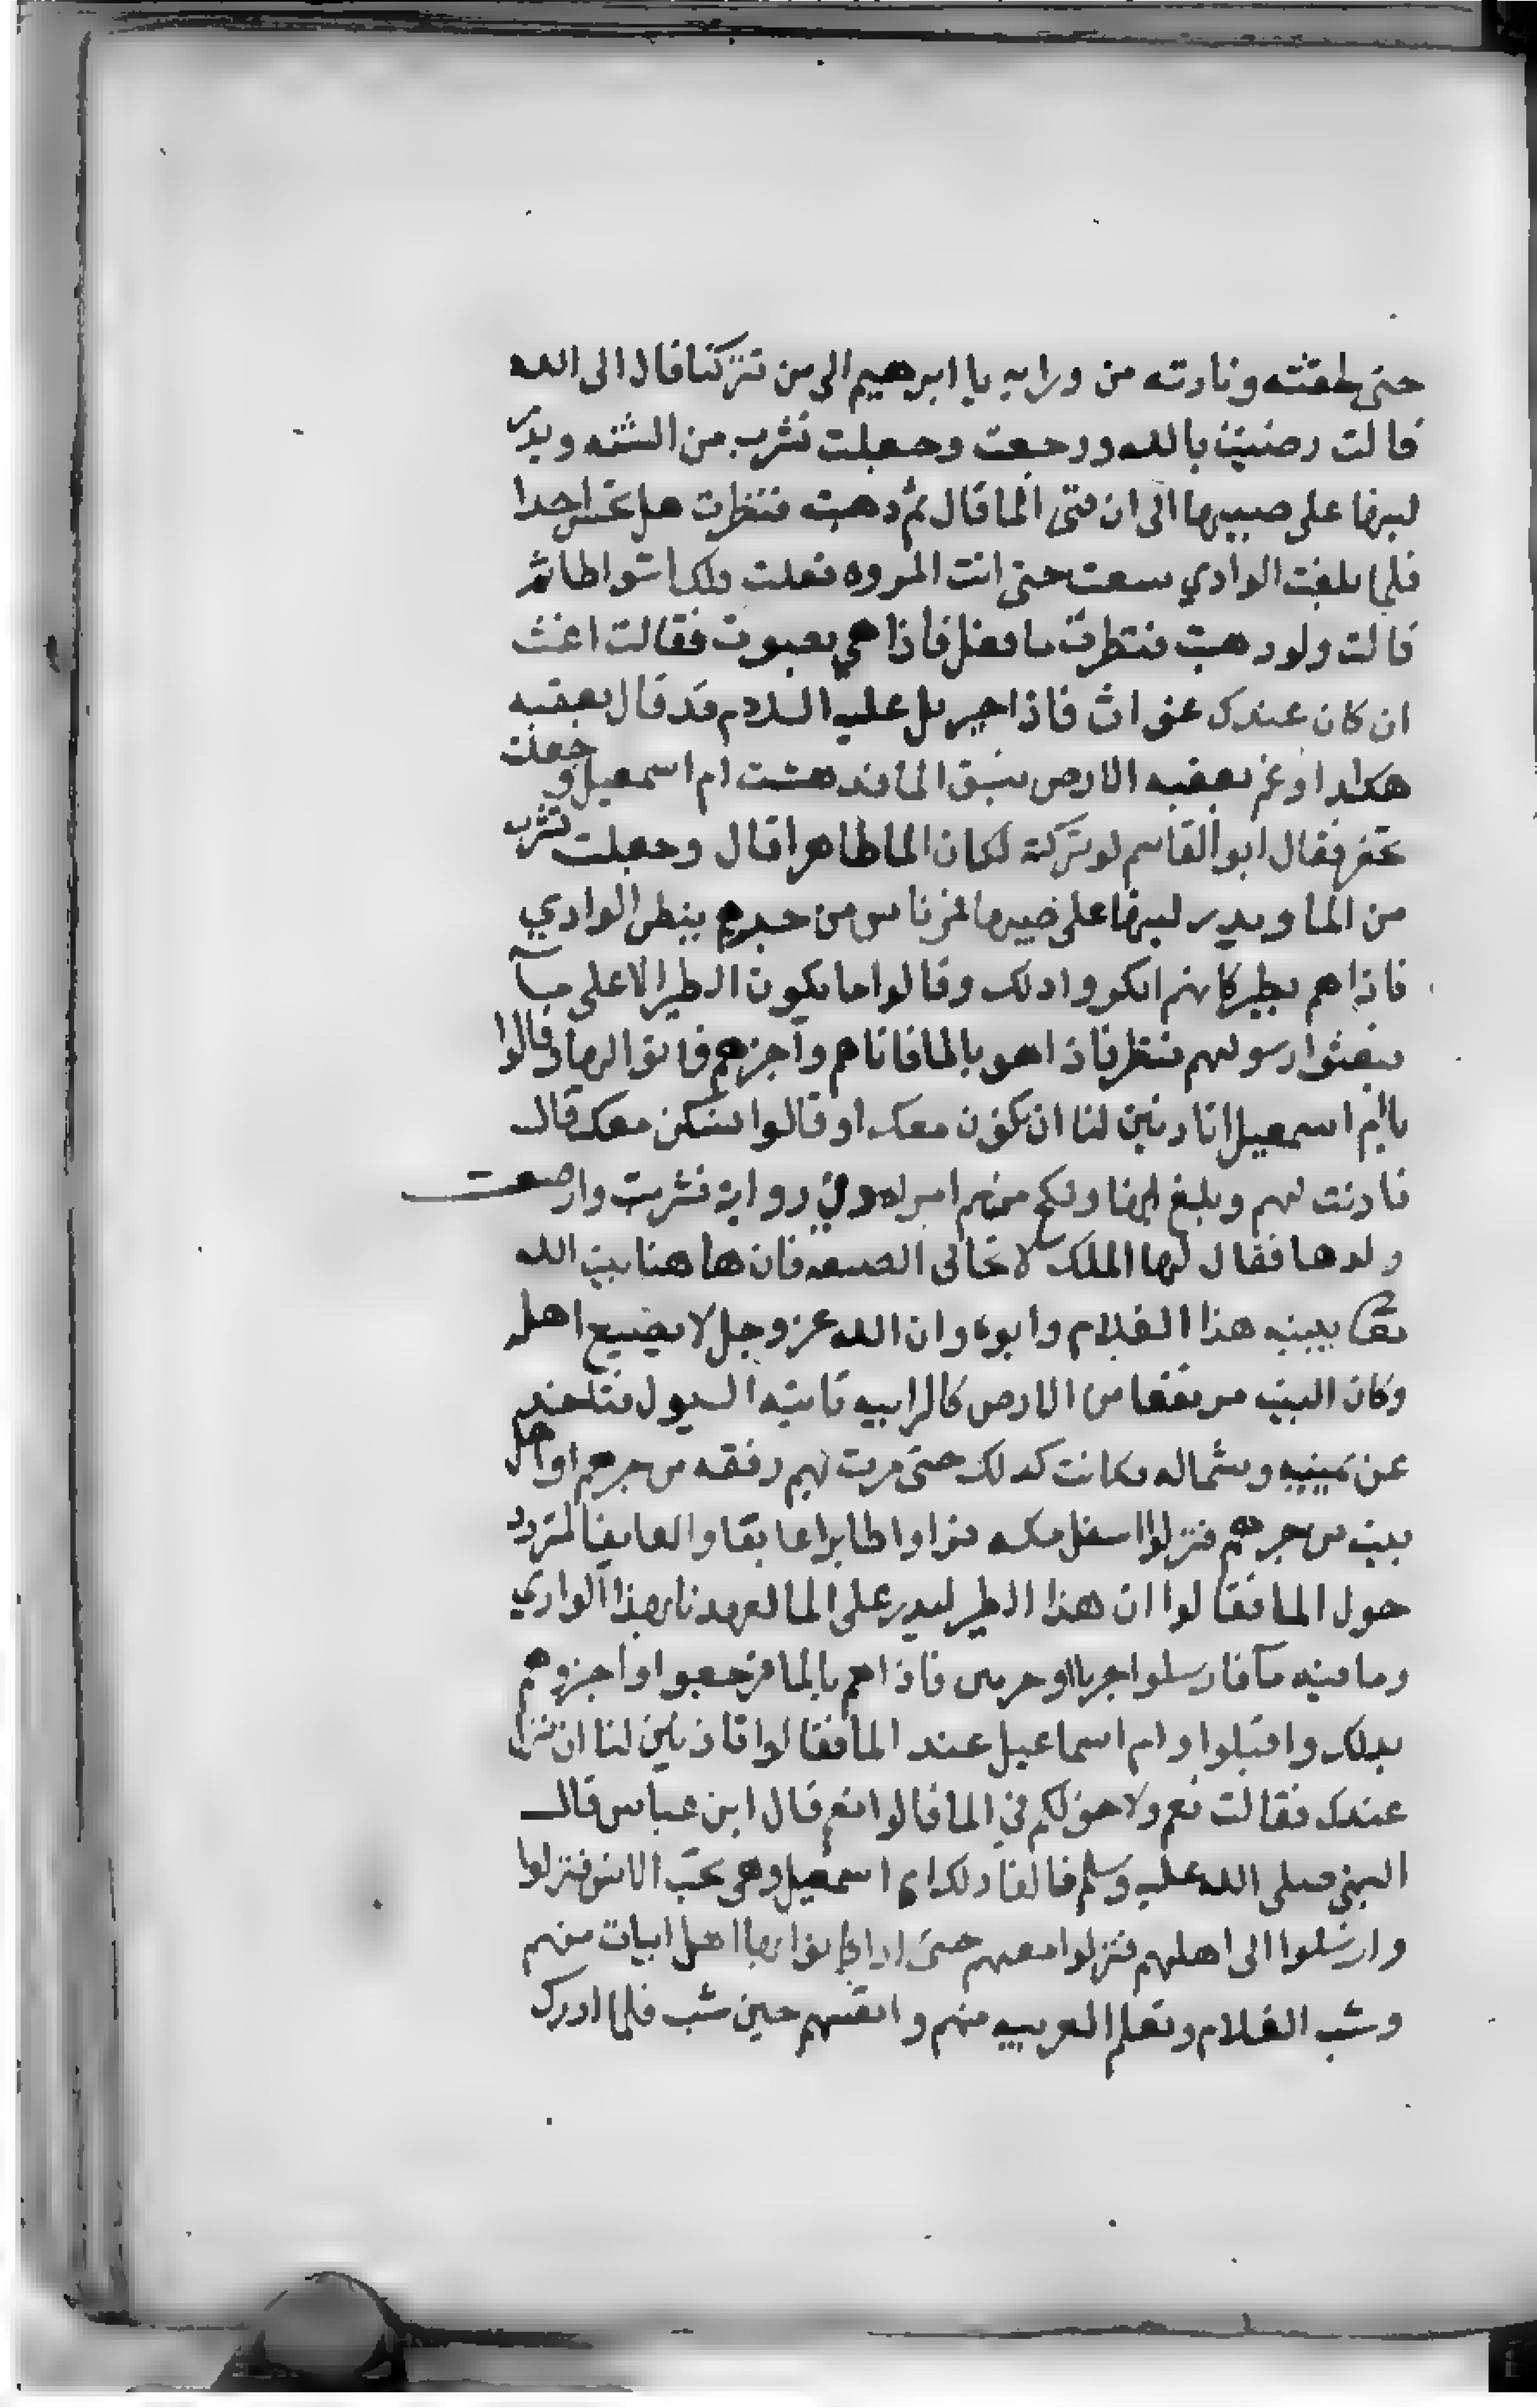 حتى لحقته ونادته من ورايه يا ابرهيم الى من تتركنا قال الى الله
قالت رضيت بالله ورجعت وجعلت تشرب من الشنه ويدر
لبنها على صبيها الى ان فنى الما قال ثم ذهبت فنظرت هل تحس احدا
فلما بلغت الوادي سعت حتى اتت المروه فعلت ذلك اشواطا ثم
قالت ولو ذهبت فنظرت ما فعل فاذا هي بصوت فقالت اغث
ان كان عندك غواث فاذا جبريل عليه السلام قد قال بعقبه
هكذا وغمز بعقبه الارض فنبق الما فدهشت ام اسمعيل وجعلت
تحفر فقال ابو القاسم لو تركته لكان الما ظاهرا قال وجعلت تشرب
من الما ويدر لبنها على صبيها فمر ناس من جرهم ببطن الوادي
فاذا هم بطير كانهم انكروا ذلك وقالوا ما يكون الطير الا على مآ
فبعثوا رسولهم فنظر فاذا هو بالما فاتاهم واخبرهم فاتوا اليها وقالوا
يا ام اسمعيل اتاذنين لنا ان نكون معك او قالوا نسكن معك قال
فاذنت لهم وبلغ ابنها ونكح منهم امراه وفي رواية فشربت وارضعت
ولدها فقال لها الملك لا تخافي الضيعه فان هاهنا بيت الله
تعا يبينه هذا الغلام وابوه وان الله عز وجل لا يضيع اهله
وكان البيت مرتفعا من الارض كالرابيه تاتيه السيول فتاخذ
عن يمينه وشماله فكانت كذلك حتى مرت بهم رفقه من جرهم او اهل
بيت من جرهم فنزلوا اسفل مكه فراوا طايرا عايفا والعايف المتردد
حول الما فقالوا ان هذا الطير ليدور على الما لعهدنا بهذا الوادي
وما فيه مآ فارسلوا جريا او جريين فاذا هم بالما فرجعوا واخبروهم
بذلك واقبلوا وام اسماعيل عند الما فقالوا تاذنين لنا ان ننزل
عندك فقالت نعم ولا حق لكم في الما قالوا نعم قال ابن عباس قال
النبي صلى الله عليه وسلم فالفا ذلك ام اسمعيل وهي تحب الانس فنزلوا
وارسلوا الى اهلهم فنزلوا معهم حتى اذا كانوا بها اهل ابيات منهم
وشب الغلام وتعلم العربيه منهم وانفسهم حين شب فلما ادرك